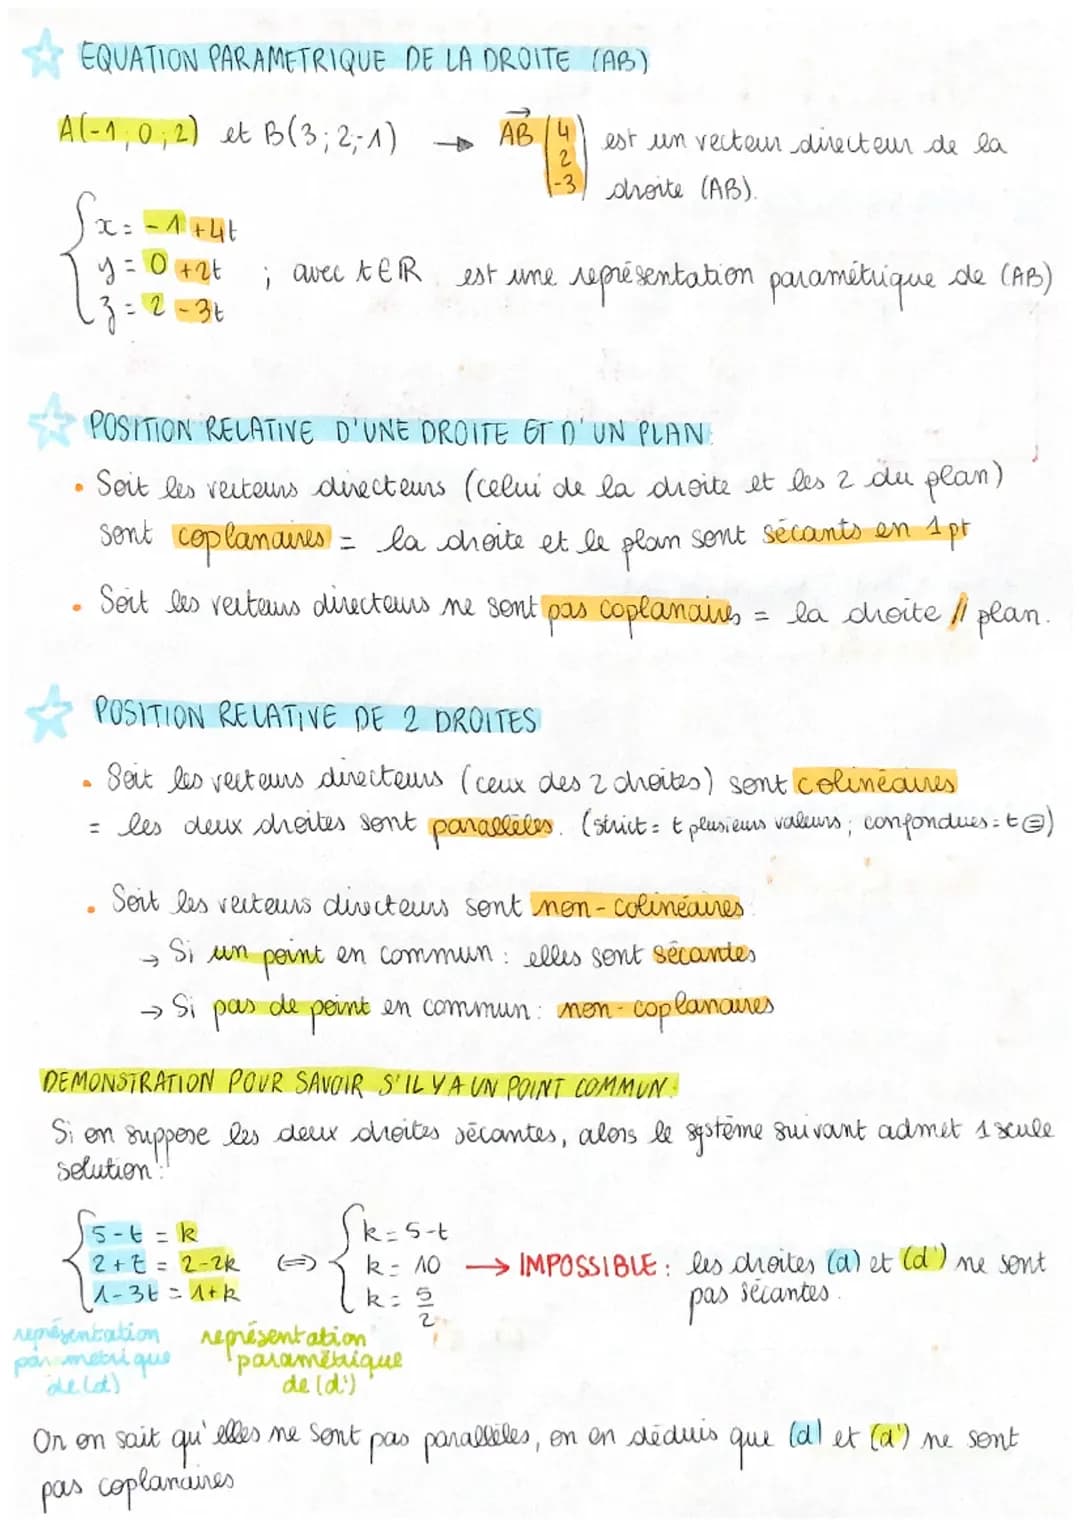 EQUATION PARAMETRIQUE DE LA DROITE (AB)
A(-1;0;2) et B(3;2;-1) → AB (4 2 -3) est un vecteur directeur de la
droite (AB).
x = -1 +4t
y = 0 +2t ; avec t∈ℝ est une représentation paramétrique de (AB)
z = 2 -3t
POSITION RELATIVE D'UNE DROITE ET D'UN PLAN:
• Soit les vecteurs directeurs (celui de la droite et les 2 du plan)
sont coplanaires = la droite et le plan sont sécants en 1 pt
• Soit les vecteurs directeurs ne sont pas coplanaires = la droite // plan.
POSITION RELATIVE DE 2 DROITES
• Soit les vecteurs directeurs (ceux des 2 droites) sont colinéaires
= les deux droites sont parallèles. (strict = t plusieurs valeurs ; confondues = t =)
• Soit les vecteurs directeurs sont non-colinéaires.
→ Si un point en commun : elles sont sécantes
→ Si pas de point en commun : non-coplanaires
DEMONSTRATION POUR SAVOIR S'IL Y A UN POINT COMMUN:
Si on suppose les deux droites sécantes, alors le système suivant admet 1 seule
solution :
5-t = k ⟺ k = 5-t
2+t = 2-2k k = 10 → IMPOSSIBLE : les droites (d) et (d') ne sont
1-3t = 1+k k = 5/2 pas sécantes.
représentation paramétrique de (d)
représentation paramétrique de (d')
Or on sait qu'elles ne sont pas parallèles, on en déduis que (d) et (d') ne sont
pas coplanaires